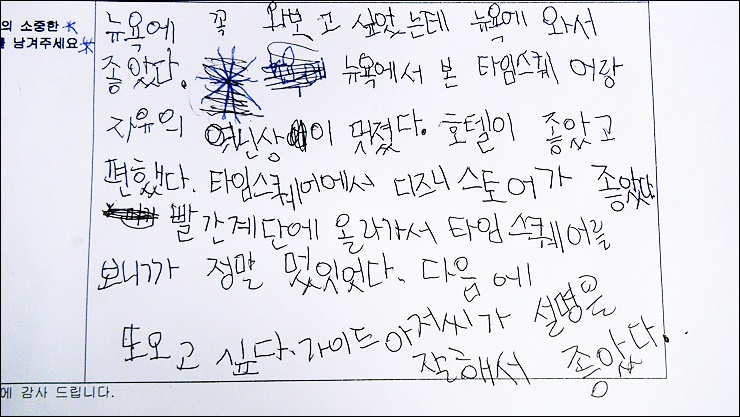 의 소중한 *
를 남겨주세요 *
뉴욕에 꼭 와보고 싶었는데 뉴욕에 와서
좋았다. 뉴욕에서 본 타임스퀘 어랑
자유의 여신상이 멋졌다. 호텔이 좋았고
편했다. 타임스퀘어에서 디즈니 스토어가 좋았다
빨간계단에 올라가서 타임 스퀘어를
보니까 정말 멌있었다. 다음 에
또오고 싶다. 가이드 아저씨가 설명을
잘해서 좋았다.
에 감사 드립니다.